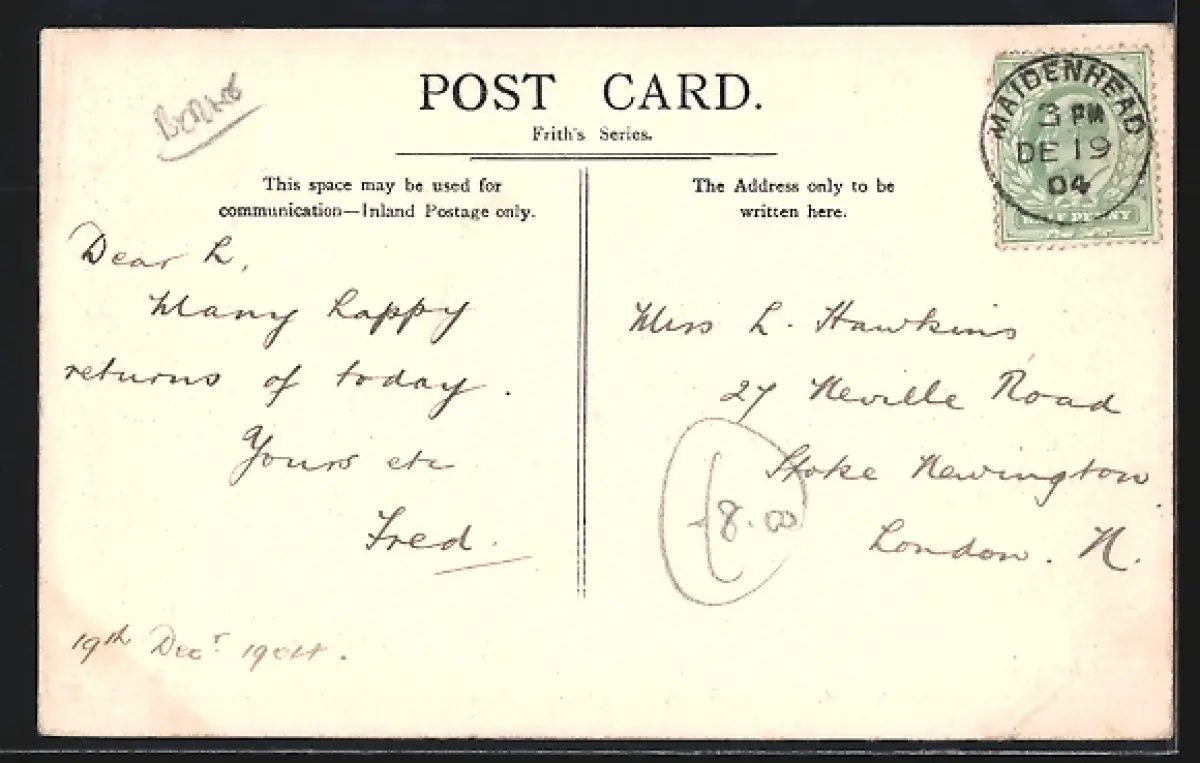 POST CARD.
Frith's Series.
This space may be used for
communication—Inland Postage only.
The Address only to be
written here.
MAIDENHEAD
3 PM
DE 19
04
HALF PENNY
Dear L,
Many happy
returns of today.
Yours etc
Fred.
19th Decr 1904.
Miss L. Hawkins
27 Neville Road
Stoke Newington
London. N.
8.00